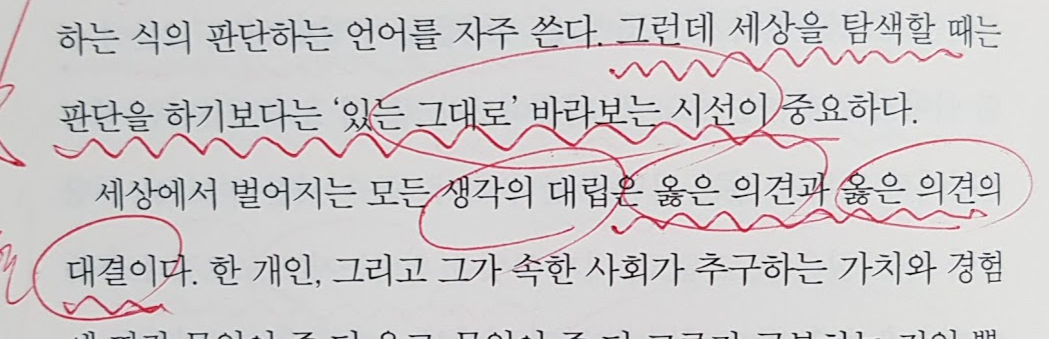 하는 식의 판단하는 언어를 자주 쓴다. 그런데 세상을 탐색할 때는
판단을 하기보다는 ‘있는 그대로’ 바라보는 시선이 중요하다.
세상에서 벌어지는 모든 생각의 대립은 옳은 의견과 옳은 의견의
대결이다. 한 개인, 그리고 그가 속한 사회가 추구하는 가치와 경험